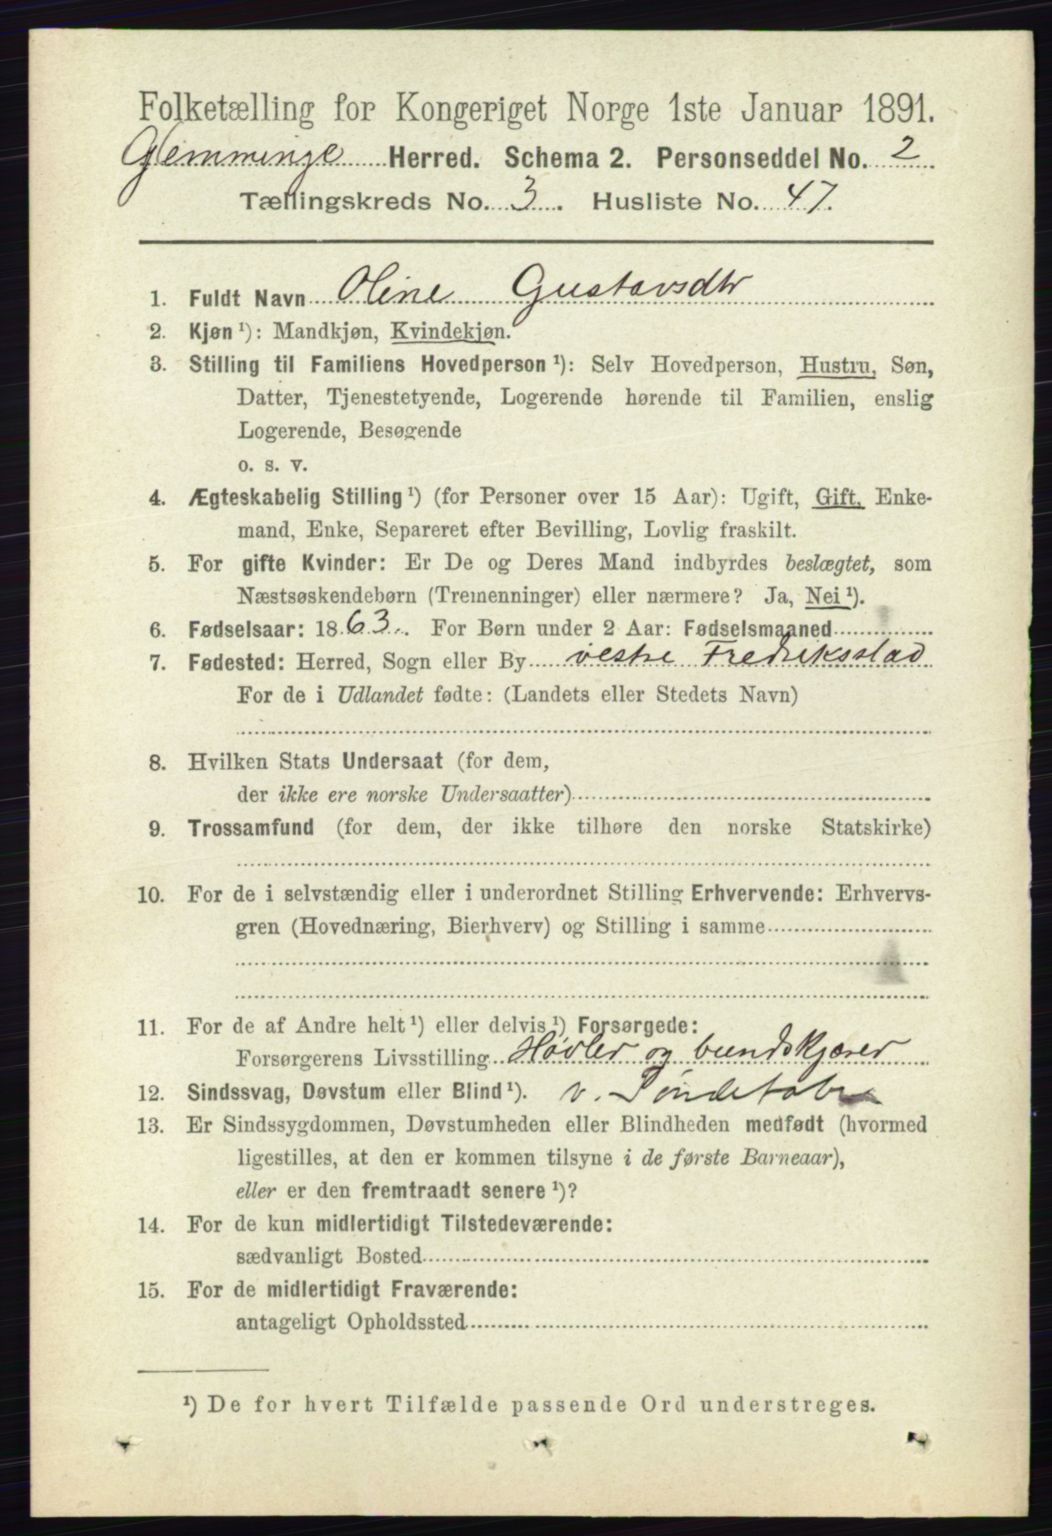 Folketælling for Kongeriget Norge 1ste Januar 1891.
Glemminge Herred. Schema 2. Personseddel No. 2
Tællingskreds No. 3. Husliste No. 47.
1. Fuldt Navn Oline Gustavsdtr
2. Kjøn ¹): Mandkjøn, Kvindekjøn.
3. Stilling til Familiens Hovedperson ¹): Selv Hovedperson, Hustru, Søn,
Datter, Tjenestetyende, Logerende hørende til Familien, enslig
Logerende, Besøgende
o. s. v.
4. Ægteskabelig Stilling ¹) (for Personer over 15 Aar): Ugift, Gift, Enke-
mand, Enke, Separeret efter Bevilling, Lovlig fraskilt.
5. For gifte Kvinder: Er De og Deres Mand indbyrdes beslægtet, som
Næstsøskendebørn (Tremenninger) eller nærmere? Ja, Nei ¹).
6. Fødselsaar: 1863. For Børn under 2 Aar: Fødselsmaaned
7. Fødested: Herred, Sogn eller By vestre Fredriksstad
For de i Udlandet fødte: (Landets eller Stedets Navn)
8. Hvilken Stats Undersaat (for dem,
der ikke ere norske Undersaatter)
9. Trossamfund (for dem, der ikke tilhøre den norske Statskirke)
10. For de i selvstændig eller i underordnet Stilling Erhvervende: Erhvervs-
gren (Hovednæring, Bierhverv) og Stilling i samme
11. For de af Andre helt ¹) eller delvis ¹) Forsørgede:
Forsørgerens Livsstilling Høvler og bundskjærer
12. Sindssvag, Døvstum eller Blind ¹). v. Töndefabr
13. Er Sindssygdommen, Døvstumheden eller Blindheden medfødt (hvormed
ligestilles, at den er kommen tilsyne i de første Barneaar),
eller er den fremtraadt senere ¹)?
14. For de kun midlertidigt Tilstedeværende:
sædvanligt Bosted
15. For de midlertidigt Fraværende:
antageligt Opholdssted
¹) De for hvert Tilfælde passende Ord understreges.